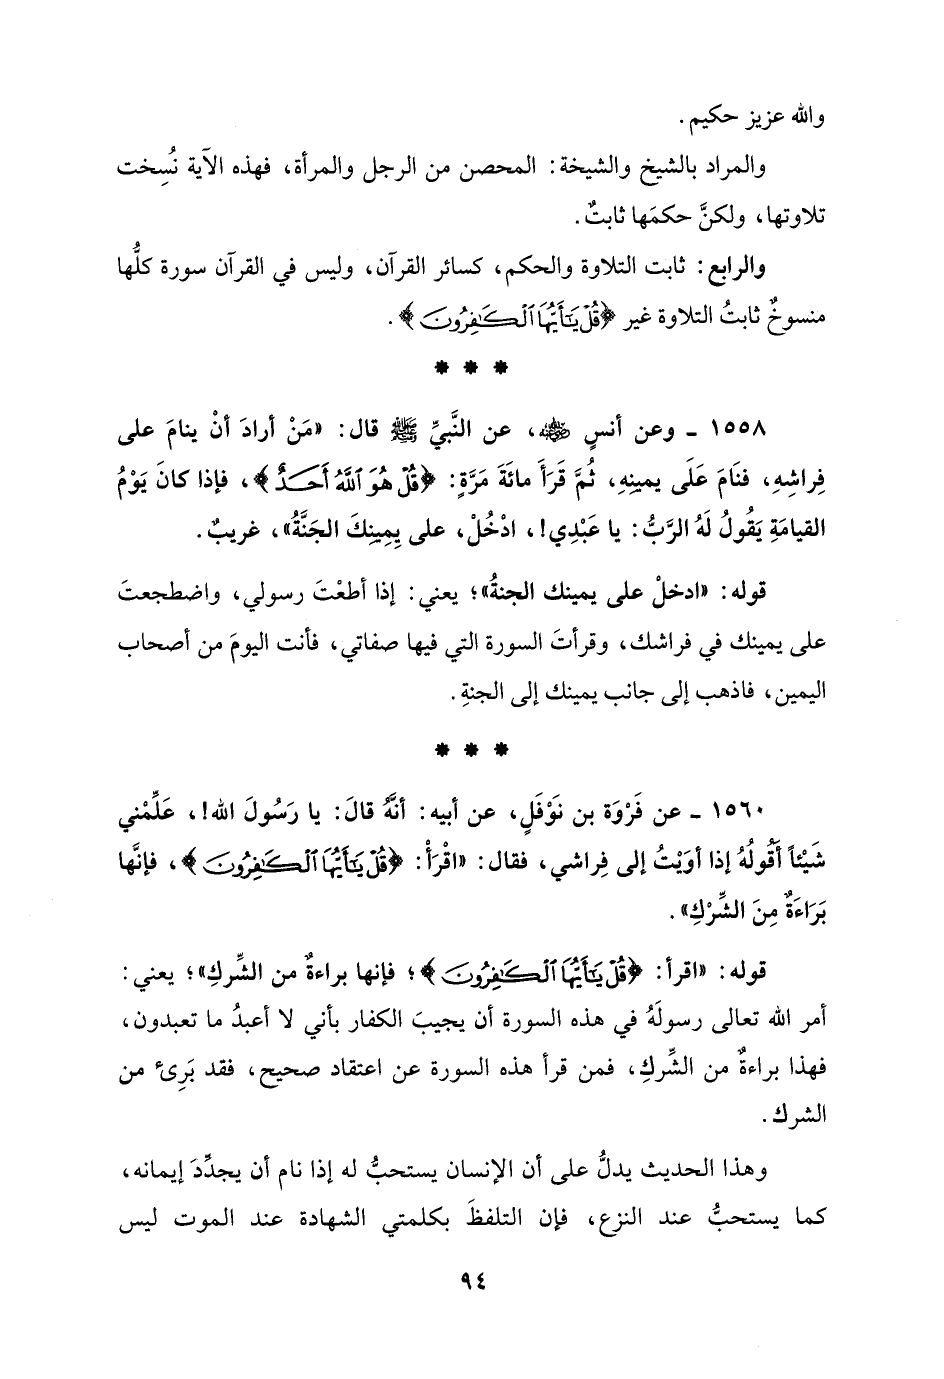 والله عزيز حكيم.
والمراد بالشيخ والشيخة: المحصن من الرجل والمرأة، فهذه الآية نُسِخت
تلاوتها، ولكنَّ حكمَها ثابتٌ.
والرابع: ثابت التلاوة والحكم، كسائر القرآن، وليس في القرآن سورة كلُّها
منسوخٌ ثابتُ التلاوة غير ﴿قُلْ يَٰٓأَيُّهَا ٱلْكَٰفِرُونَ﴾.
* * *
١٥٥٨ ـ وعن أنسٍ ﵁، عن النَّبيِّ ﷺ قال: «مَنْ أرادَ أنْ ينامَ على
فِراشِهِ، فنَامَ عَلَى يمينِهِ، ثُمَّ قَرَأَ مائَةَ مَرَّةٍ: ﴿قُلْ هُوَ ٱللَّهُ أَحَدٌ﴾، فإذا كانَ يَوْمُ
القيامَةِ يَقُولُ لَهُ الرَّبُّ: يا عَبْدِي!، ادْخُلْ، على يِمِينِكَ الجَنَّةُ»، غريبٌ.
قوله: «ادخلْ على يمينك الجنةُ»؛ يعني: إذا أطعْتَ رسولي، واضطجعتَ
على يمينك في فراشك، وقرأتَ السورة التي فيها صفاتي، فأنت اليومَ من أصحاب
اليمين، فاذهب إلى جانب يمينك إلى الجنةِ.
* * *
١٥٦٠ ـ عن فَرْوَة بن نَوْفَلٍ، عن أبيه: أنَّهُ قالَ: يا رَسُولَ الله!، عَلِّمْني
شَيْئاً أَقُولُهُ إذا أوَيْتُ إلى فِراشي، فقال: «اقْرَأْ: ﴿قُلْ يَٰٓأَيُّهَا ٱلْكَٰفِرُونَ﴾، فإنَّها
بَرَاءَةٌ مِنَ الشِّرْكِ».
قوله: «اقرأ: ﴿قُلْ يَٰٓأَيُّهَا ٱلْكَٰفِرُونَ﴾؛ فإنها براءةٌ من الشِّركِ»؛ يعني:
أمر الله تعالى رسولَهُ في هذه السورة أن يجيبَ الكفار بأني لا أعبدُ ما تعبدون،
فهذا براءةٌ من الشِّركِ، فمن قرأ هذه السورة عن اعتقاد صحيح، فقد بَرِئ من
الشرك.
وهذا الحديث يدلُّ على أن الإنسان يستحبُّ له إذا نام أن يجدِّدَ إيمانه،
كما يستحبُّ عند النزع، فإن التلفظَ بكلمتي الشهادة عند الموت ليس
٩٤